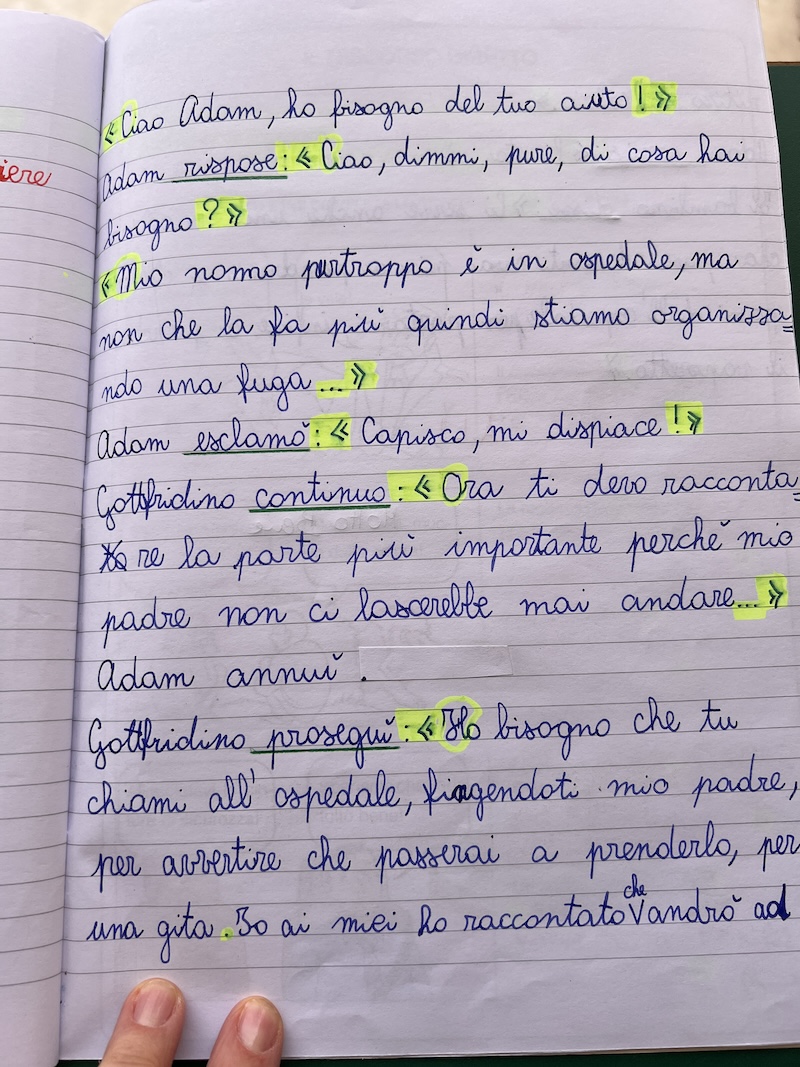 iere
«Ciao Adam, ho bisogno del tuo aiuto!»
Adam rispose: «Ciao, dimmi, pure, di cosa hai
bisogno?»
«Mio nonno purtroppo è in ospedale, ma
non che la fa più quindi stiamo organizza=
ndo una fuga...»
Adam esclamò: «Capisco, mi dispiace!»
Gottfridino continuo: «Ora ti devo racconta=
re la parte più importante perché mio
padre non ci lascerebbe mai andare...»
Adam annuì.
Gottfridino proseguì: «Ho bisogno che tu
chiami all'ospedale, fingendoti mio padre,
per avvertire che passerai a prenderlo, per
una gita. Io ai miei ho raccontato che andrò ad